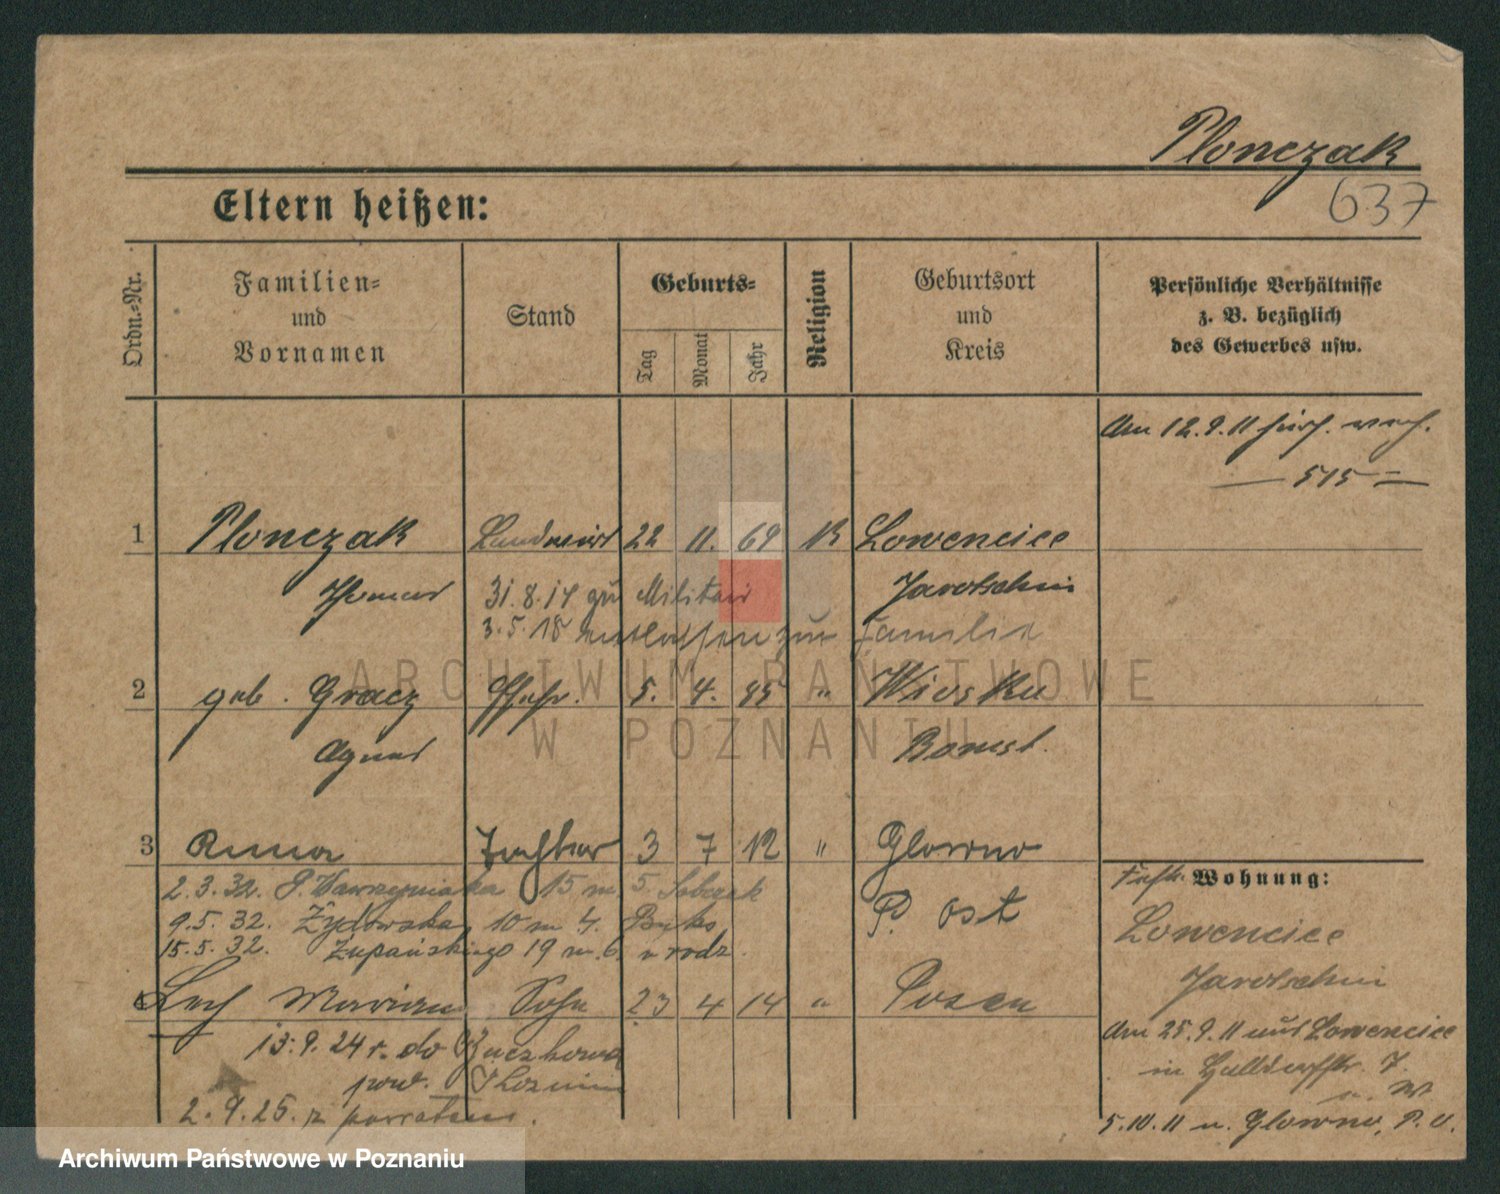 Plonczak
637
Eltern heißen:
Ordn.-Nr.
Familien= und Vornamen
Stand
Geburts=
Tag
Monat
Jahr
Religion
Geburtsort und Kreis
Persönliche Verhältnisse
z. B. bezüglich
des Gewerbes usw.
Am 12.9.11
515
1 Plonczak Landwirt 22 11. 69 K Lowencice
Thomas 31.8.17 zu Militair Jarotschin
3.5.18 entlassen zur Familie
2 geb. Gracz Ehefr. 5. 4. 85 " Wiosku
Agnes Bomst.
3 Anna Tochter 3 7 12 " Glowno
2.3.32. P. Wawrzyniaka 15 m. 5. Sobczak
P. Ost
9.5.32. Żydowska 10 m 4.
15.5.32. Żupańskiego 19 m. 6. u rodz.
4 Lech Marian Sohn 23 4 14 " Posen
13.9.24 r. do
pow.
2.9.25. z powrotem.
Wohnung:
Lowencice
Jarotschin
Am 25.9.11 aus Lowencice
in 7.
5.10.11 n. Glowno, P. O.
ARCHIWUM PAŃSTWOWE
W POZNANIU
Archiwum Państwowe w Poznaniu